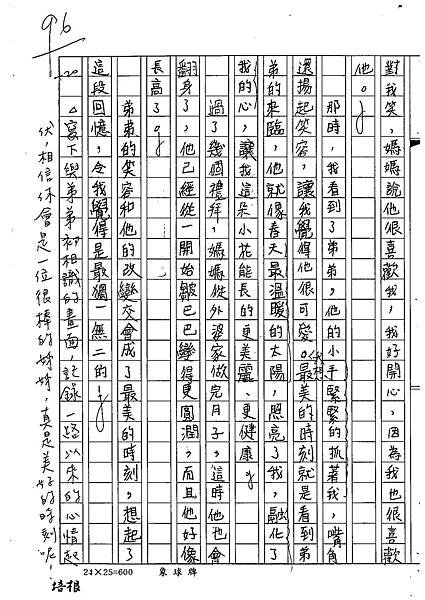 96
對我笑，媽媽說他很喜歡我，我好開心，因為我也很喜歡
他。
那時，我看到了弟弟，他的小手緊緊的抓著我，嘴角
還揚起笑容，讓我覺得他很可愛。我想最美的時刻就是看到弟
弟的來臨，他就像春天最溫暖的太陽，照亮了我，融化了
我的心，讓我這朵小花能長的更美麗、更健康。
過了幾個禮拜，媽媽從外婆家做完月子，這時他也會
翻身了，他已經從一開始皺巴巴變得更圓潤，而且他好像
長高了。
弟弟的笑容和他的改變交會成了最美的時刻，想起了
這段回憶，令我覺得是最獨一無二的！
△寫下與弟弟初相識的畫面，記錄一路以來的心情起
伏，相信你會是一位很棒的姊姊，真是美好的時刻呢！
24×25=600 象球牌
培根